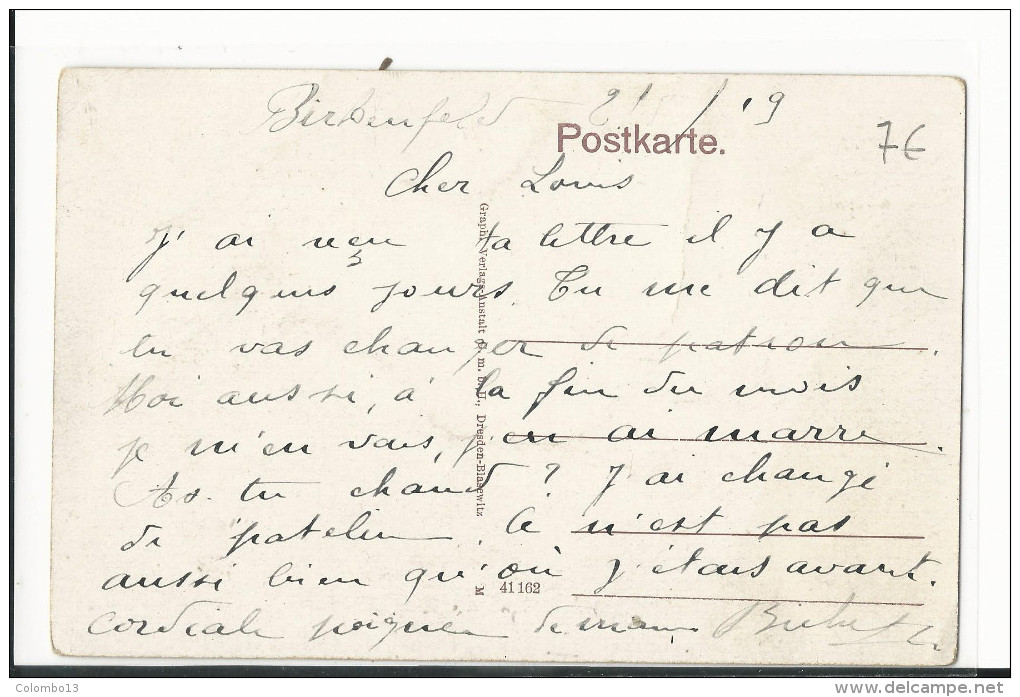 Birkenfeld 21 / 19
Postkarte.
7€
Cher Louis
J'ai reçu ta lettre il y a
quelques jours. Tu me dit que
tu vas changer de patron.
Moi aussi, à la fin du mois
je m'en vais, j'en ai marre.
As-tu chaud ? J'ai changé
de patelin. Ce n'est pas
aussi bien qu'où j'étais avant.
Cordiale poignée de main
Graph. Verlags-Anstalt G. m. b. H., Dresden-Blasewitz
M 41162
Colombo13
delcampe.net